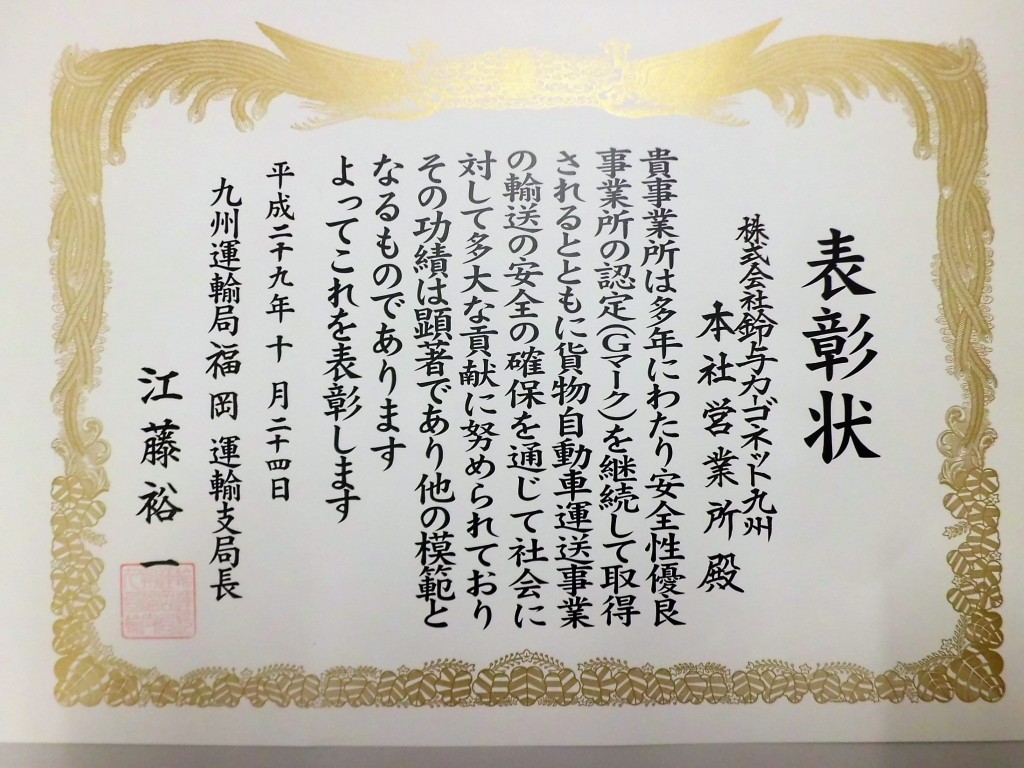 表彰状
株式会社鈴与カーゴネット九州
本社営業所殿
貴事業所は多年にわたり安全性優良
事業所の認定(Gマーク)を継続して取得
されるとともに貨物自動車運送事業
の輸送の安全の確保を通じて社会に
対して多大な貢献に努められており
その功績は顕著であり他の模範と
なるものであります
よってこれを表彰します
平成二十九年十月二十四日
九州運輸局福岡運輸支局長
江藤裕一